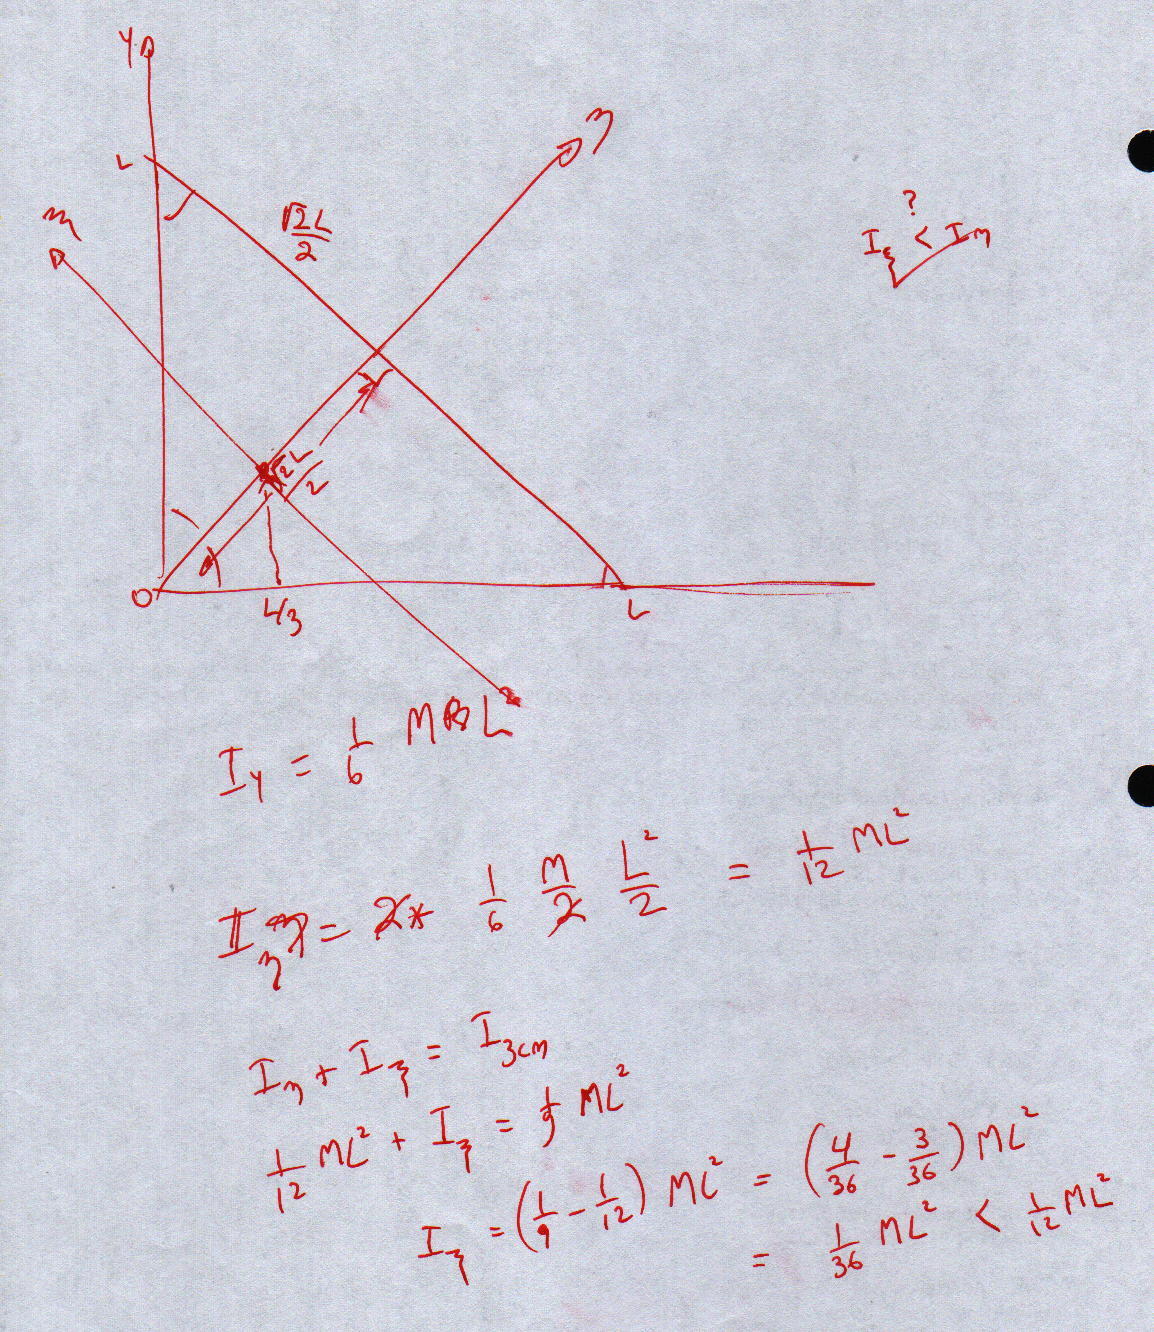 Y
L
√2L/2
η
ξ
?
I_ξ < I_η
√2L/2
O
L/3
L
I_Y = 1/6 M L²
I_η = 2* 1/6 M/2 L²/2 = 1/12 ML²
I_η + I_ξ = I_3cm
1/12 ML² + I_ξ = 1/9 ML²
I_ξ = (1/9 - 1/12) ML² = (4/36 - 3/36) ML²
= 1/36 ML² < 1/12 ML²